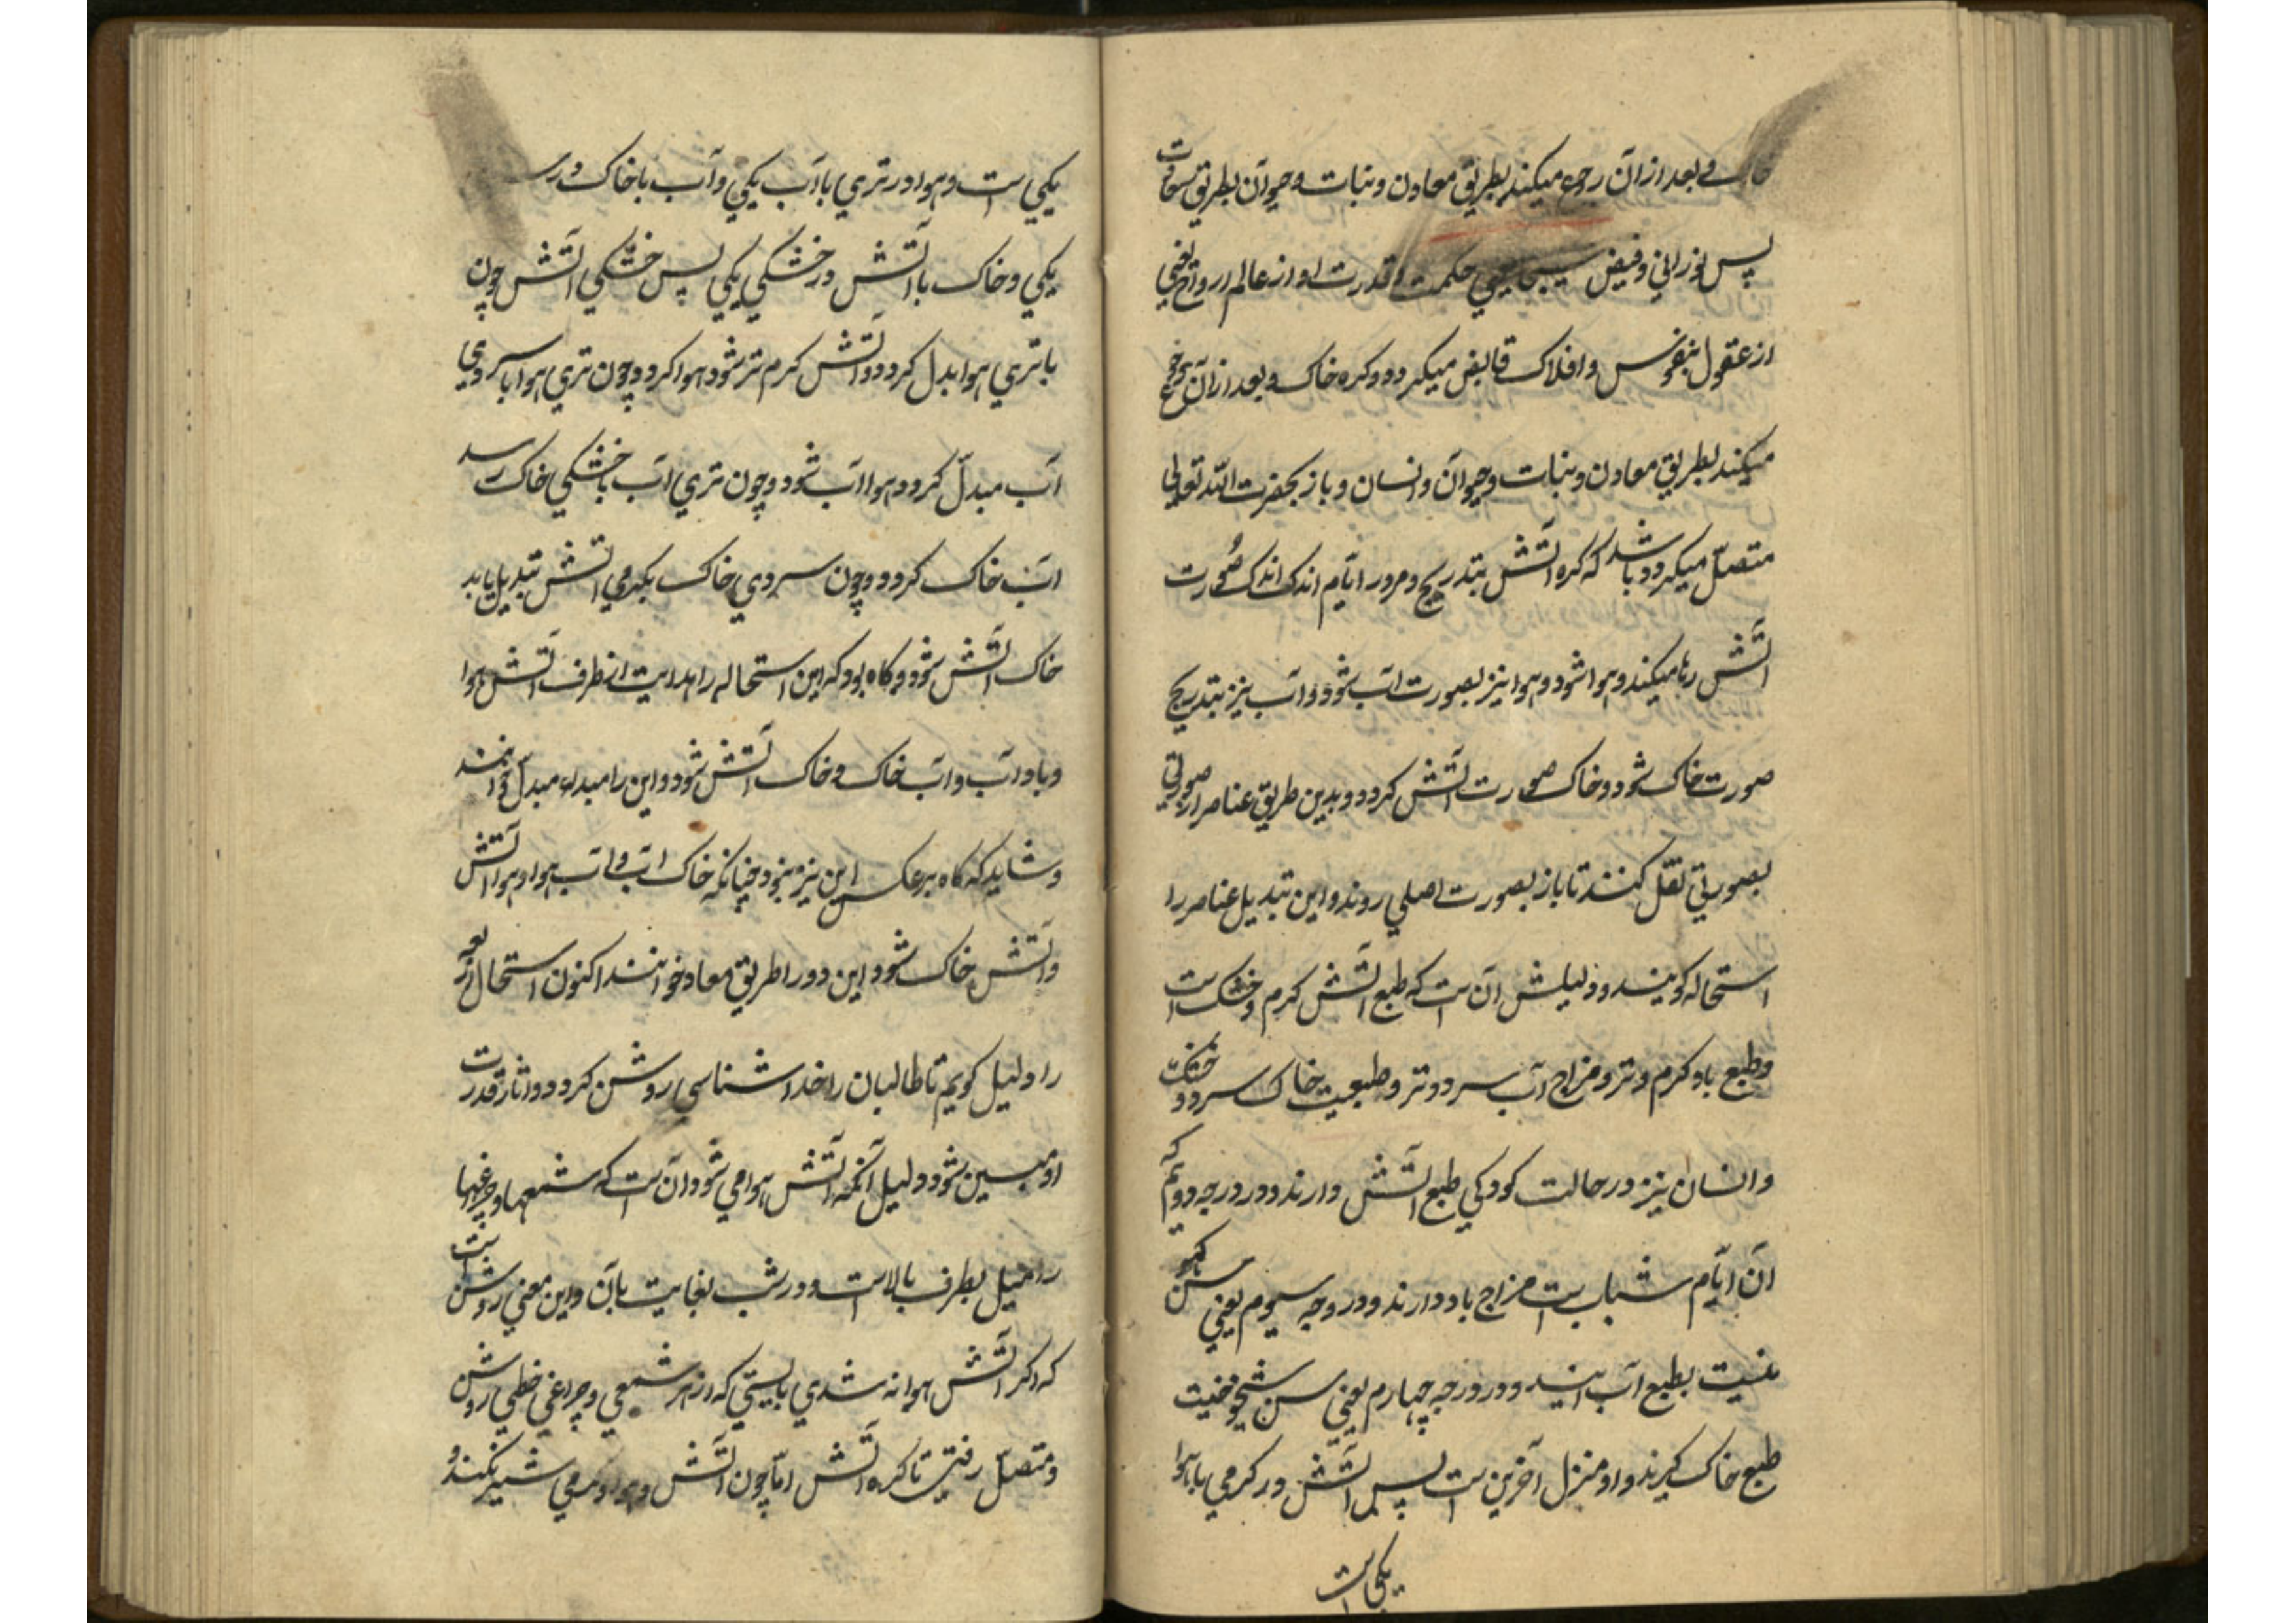 خاک و بعد ازان رجوع میکند بطریق معادن و نبات و حیوان بطریق
پس نورانی و فیض سبحانی حکمت و قدرت او از عالم ارواح یعنی
از عقول بنفوس و افلاک قابض میکردد و کره خاک و بعد ازان رجوع
میکند بطریق معادن و نبات و حیوان و انسان و باز بحضرت الله تعالی
متصل میکردد باشد که کره آتش بتدریج و مرور ایام اندک اندک صورت
آتش رها میکند و هوا شود و هوا نیز بصورت آب شود و آب نیز بتدریج
صورت خاک شود و خاک صورت آتش کردد و بدین طریق عناصر از صورتی
بصورتی نقل کنند تا باز بصورت اصلی روند و این تبدیل عناصر را
استحاله کویند و دلیلش آن است که طبع آتش کرم و خشک است
و طبع باد کرم و تر و مزاج آب سرد و تر و طبعیت خاک سرد و خشک
و انسان نیز در حالت کودکی طبع آتش دارند و در درجه دویم که
آن ایام شباب است مزاج باد دارند و در درجه سیوم یعنی سن
بطبع آب آیند و در درجه چهارم یعنی سن شیخوخیت
طبع خاک کیرند و او منزل آخرین است پس آتش در کرمی با هوا
یکی است
یکی است و هوا در تری با آب یکی و آب با خاک در سر
یکی و خاک با آتش در خشکی یکی پس خشکی آتش چون
با تری هوا بدل کردد و آتش کرم تر شود هوا کردد و چون تری هوا با سردی
آب مبدل کردد هوا آب شود و چون تری آب با خشکی خاک رسد
آب خاک کردد و چون سردی خاک بکرمی آتش تبدیل یابد
خاک آتش شود و کاه بود که این استحاله را بدایت از طرف آتش هوا
و باد آب و آب خاک و خاک آتش شود و این را مبدء مبدل خوانند
و شاید که کاه برعکس این نیز بود چنانکه خاک آب و آب هوا و هوا آتش
و آتش خاک شود این دور را طریق معاد خوانند اکنون استحال
را دلیل کویم تا طالبان را خدا شناسی روشن کردد و آثار قدرت
او مبین شود دلیل آنکه آتش هوا می شود آن است که شمعها و چراغها
را میل بطرف بالا است و در شب بغایت بآن و این معنی روشن است
که اکر آتش هوا نه شدی بایستی که از هر شمعی و چراغی خطی روشن
و متصل رفتی تا کره آتش اما چون آتش و هوا و کرمی